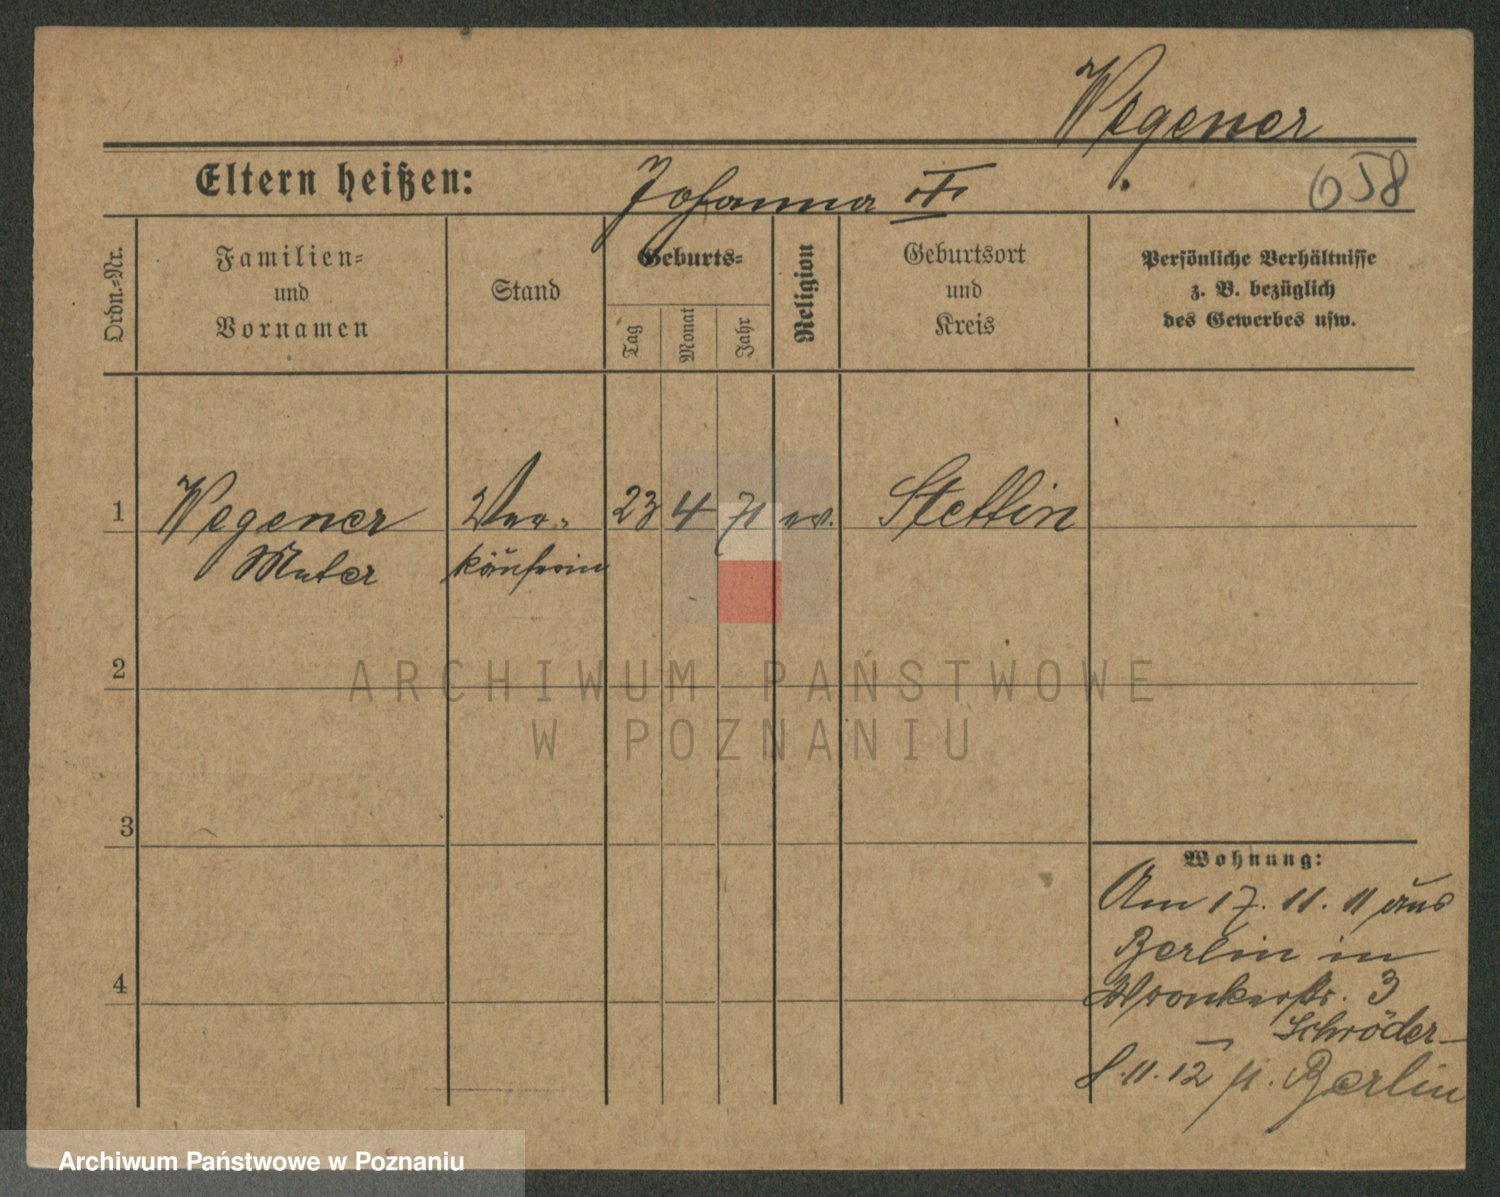 Wegener
Eltern heißen:
Johanna
658
Ordn.-Nr.
Familien-
und
Vornamen
Stand
Geburts-
Tag
Monat
Jahr
Religion
Geburtsort
und
Kreis
Persönliche Verhältnisse
z. B. bezüglich
des Gewerbes usw.
1
Wegener
Ver-
23
4
71
ev.
Stettin
käuferin
2
ARCHIWUM PAŃSTWOWE
W POZNANIU
3
Wohnung:
Am 17. 11. 11 aus
Berlin in
4
Wronkerstr. 3
Schröder
8. 11. 12 n. Berlin
Archiwum Państwowe w Poznaniu